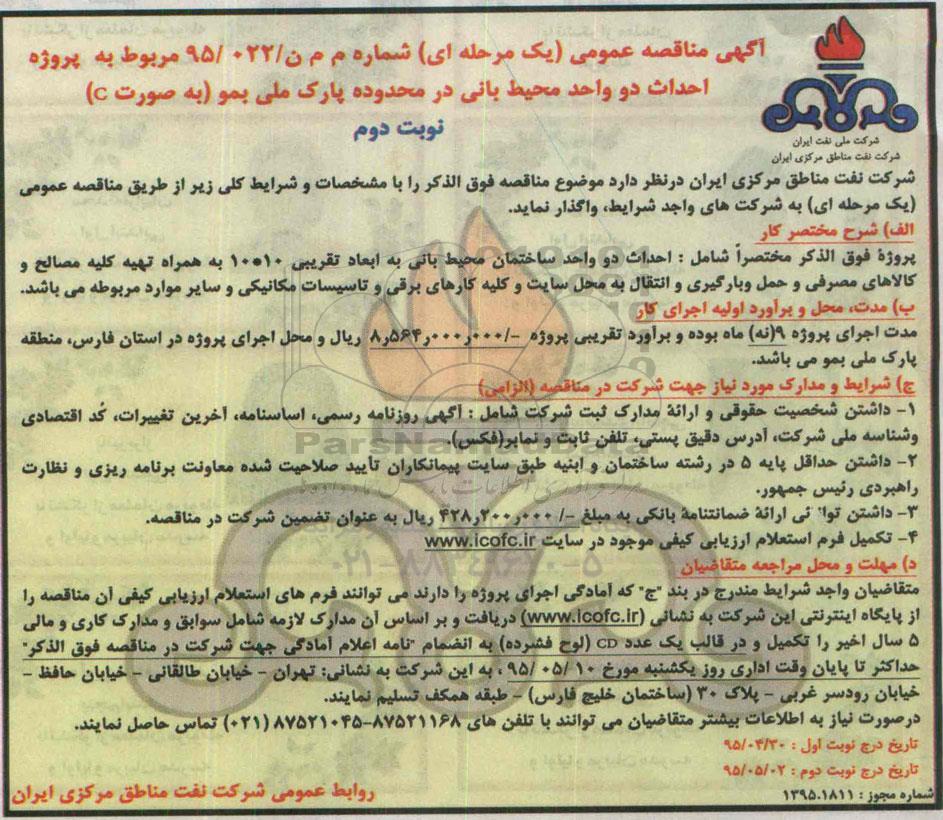 آگهی مناقصه عمومی (یک مرحله ای) شماره م م ن/۰۲۲ /۹۵ مربوط به پروژه
احداث دو واحد محیط بانی در محدوده پارک ملی بمو (به صورت C)
نوبت دوم
شرکت ملی نفت ایران
شرکت نفت مناطق مرکزی ایران
شرکت نفت مناطق مرکزی ایران درنظر دارد موضوع مناقصه فوق الذکر را با مشخصات و شرایط کلی زیر از طریق مناقصه عمومی
(یک مرحله ای) به شرکت های واجد شرایط، واگذار نماید.
الف) شرح مختصر کار
پروژهٔ فوق الذکر مختصراً شامل : احداث دو واحد ساختمان محیط بانی به ابعاد تقریبی ۱۰*۱۰ به همراه تهیه کلیه مصالح و
کالاهای مصرفی و حمل وبارگیری و انتقال به محل سایت و کلیه کارهای برقی و تاسیسات مکانیکی و سایر موارد مربوطه می باشد.
ب) مدت، محل و برآورد اولیه اجرای کار
مدت اجرای پروژه ۹(نه) ماه بوده و برآورد تقریبی پروژه -/۸٫۵۶۴٫۰۰۰٫۰۰۰ ریال و محل اجرای پروژه در استان فارس، منطقه
پارک ملی بمو می باشد.
ج) شرایط و مدارک مورد نیاز جهت شرکت در مناقصه (الزامی)
۱- داشتن شخصیت حقوقی و ارائهٔ مدارک ثبت شرکت شامل : آگهی روزنامه رسمی، اساسنامه، آخرین تغییرات، کُد اقتصادی
وشناسه ملی شرکت، آدرس دقیق پستی، تلفن ثابت و نمابر(فکس).
۲- داشتن حداقل پایه ۵ در رشته ساختمان و ابنیه طبق سایت پیمانکاران تأیید صلاحیت شده معاونت برنامه ریزی و نظارت
راهبردی رئیس جمهور.
۳- داشتن توانائی ارائهٔ ضمانتنامهٔ بانکی به مبلغ -/۴۲۸٫۲۰۰٫۰۰۰ ریال به عنوان تضمین شرکت در مناقصه.
۴- تکمیل فرم استعلام ارزیابی کیفی موجود در سایت www.icofc.ir
د) مهلت و محل مراجعه متقاضیان
متقاضیان واجد شرایط مندرج در بند "ج" که آمادگی اجرای پروژه را دارند می توانند فرم های استعلام ارزیابی کیفی آن مناقصه را
از پایگاه اینترنتی این شرکت به نشانی (www.icofc.ir) دریافت و بر اساس آن مدارک لازمه شامل سوابق و مدارک کاری و مالی
۵ سال اخیر را تکمیل و در قالب یک عدد CD (لوح فشرده) به انضمام "نامه اعلام آمادگی جهت شرکت در مناقصه فوق الذکر"
حداکثر تا پایان وقت اداری روز یکشنبه مورخ ۱۰ /۰۵ /۹۵ ، به این شرکت به نشانی: تهران - خیابان طالقانی - خیابان حافظ -
خیابان رودسر غربی - پلاک ۳۰ (ساختمان خلیج فارس) - طبقه همکف تسلیم نمایند.
درصورت نیاز به اطلاعات بیشتر متقاضیان می توانند با تلفن های ۸۷۵۲۱۱۶۸-۸۷۵۲۱۰۴۵ (۰۲۱) تماس حاصل نمایند.
تاریخ درج نوبت اول : ۹۵/۰۴/۳۰
تاریخ درج نوبت دوم : ۹۵/۰۵/۰۲
شماره مجوز : ۱۳۹۵.۱۸۱۱
روابط عمومی شرکت نفت مناطق مرکزی ایران